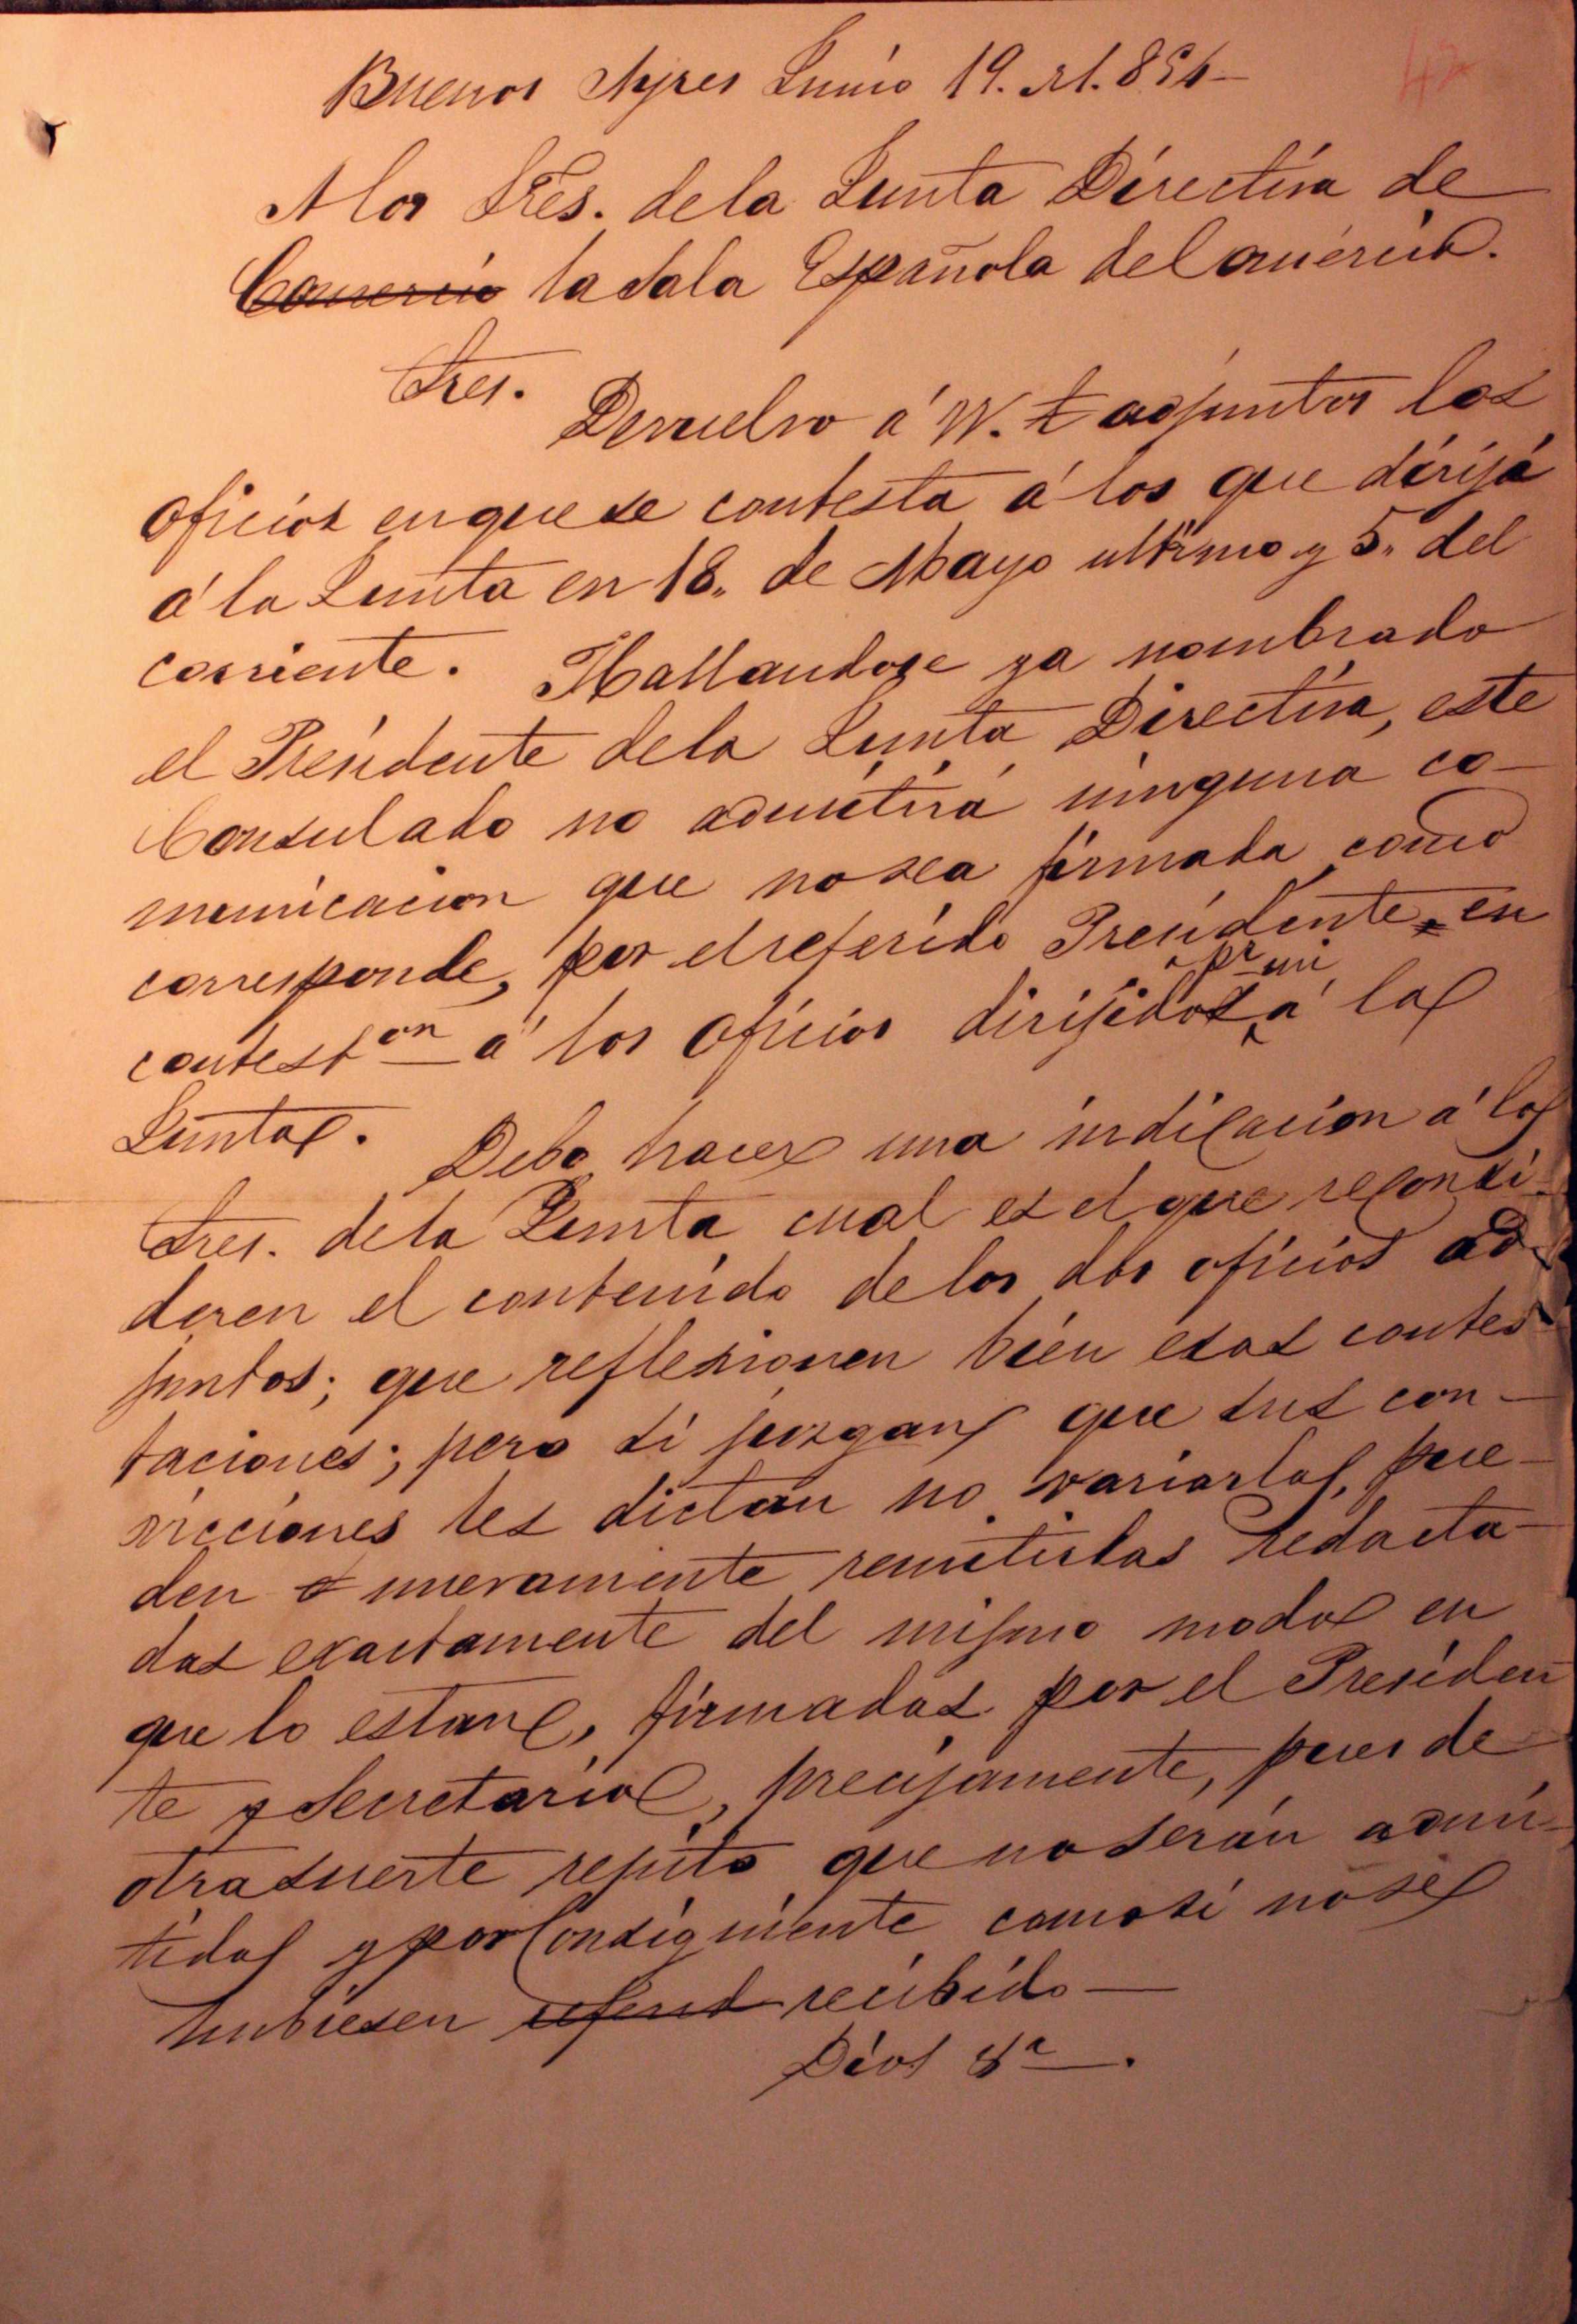 42
Buenos Ayres Junio 19. d1.854
A los Sres. de la Junta Directiva de
Comercio la Sala Española de Comercio.
Sres.
Devuelvo á VV. adjuntos los
Oficios en que se contesta á los que dirijí
á la Junta en 18,, de Mayo ultimo y 5,, del
corriente. Hallandose ya nombrado
el Presidente de la Junta Directiva, este
Consulado no admitirá ninguna co-
municacion que no sea firmada como
corresponde, por el referido Presidente en
conteston á los Oficios dirijidos pr mi á la
Junta. Debo hacer una indicacion á los
Sres. de la Junta cual es el que reconsi-
deren el contenido de los dos oficios ad-
juntos; que reflexionen bien esas contes-
taciones; pero si juzgan que sus con-
vicciones les dictan no variarlas, pue-
den nuevamente remitirlas redacta-
das exactamente del mismo modo en
que lo estan, firmadas por el Presiden
te y Secretario, precisamente, pues de
otra suerte repito que no serán admi-
tidas y por Consiguiente como si no se
hubiesen recibido—
Dios &a.